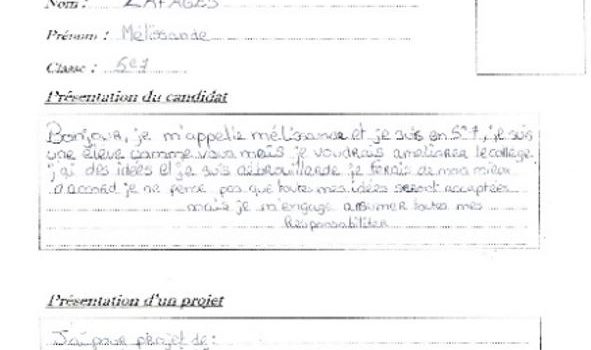 Nom : LAFAGES
Prénom : Mélissande
Classe : 5e7
Présentation du candidat
Bonjour, je m'appelle mélissande et je suis en 5e7, je suis
une élève comme vous mais je voudrais améliorer le collège,
j'ai des idées et je suis débrouillarde je ferais de mon mieux
d'accord je ne pense pas que toutes mes idées seront acceptées
mais je m'engage assumer toutes mes
Responsabiliter
Présentation d'un projet
J'ai pour projet de :